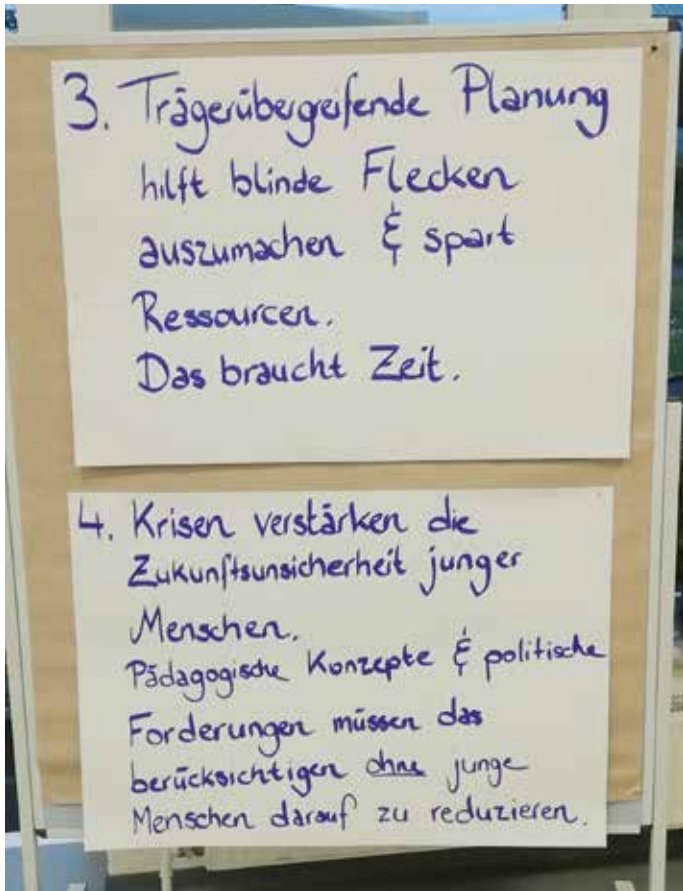 3. Trägerübergreifende Planung
hilft blinde Flecken
auszumachen & spart
Ressourcen.
Das braucht Zeit.
4. Krisen verstärken die
Zukunftsunsicherheit junger
Menschen.
Pädagogische Konzepte & politische
Forderungen müssen das
berücksichtigen ohne junge
Menschen darauf zu reduzieren.